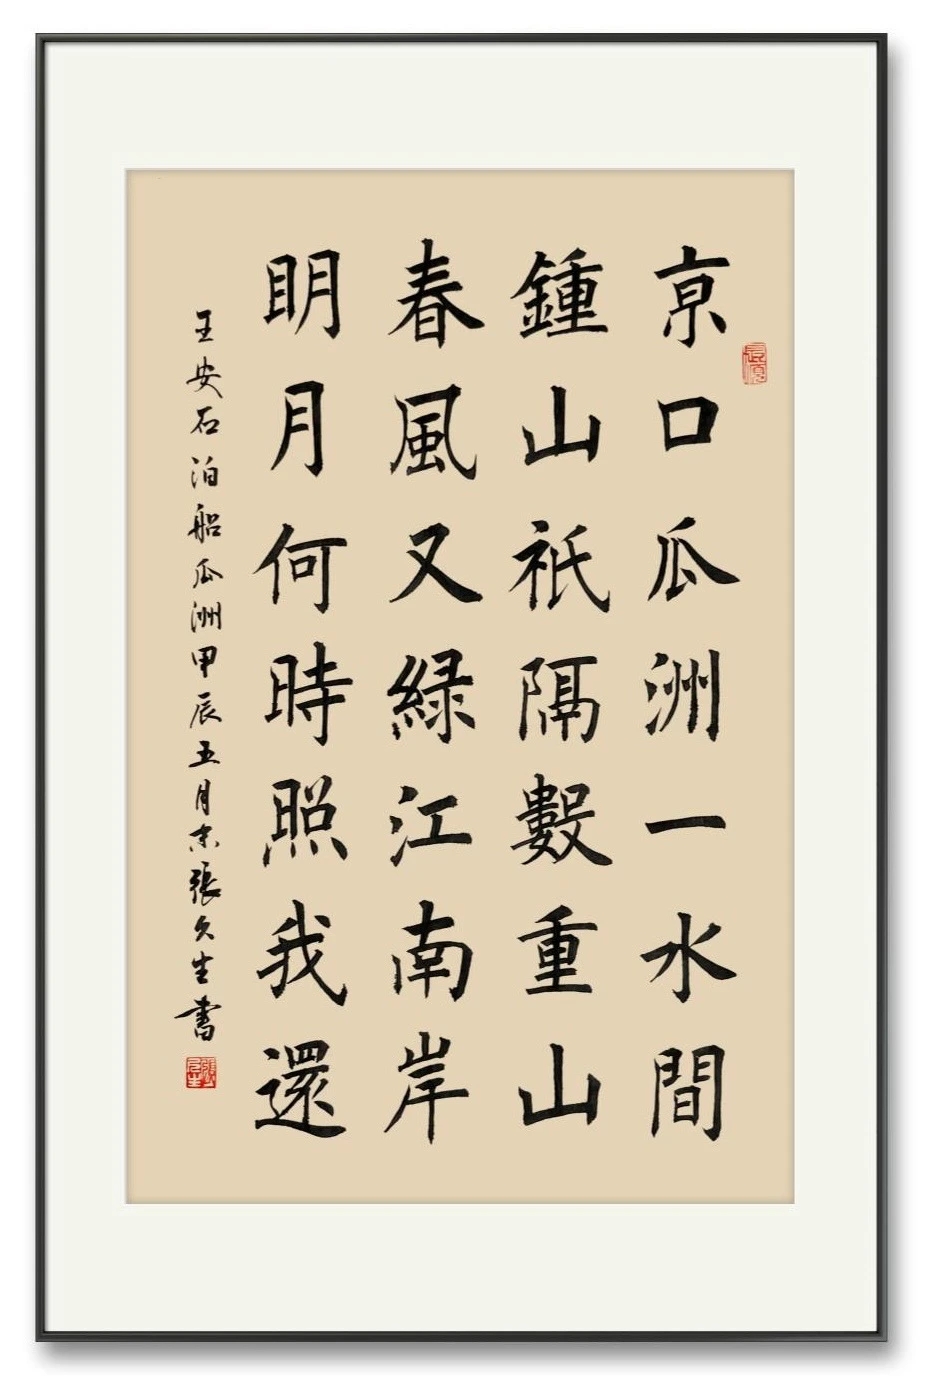 亰口瓜洲一水間
鍾山祇隔數重山
春風又緑江南岸
眀月何時照我還
王安石泊船瓜洲甲辰五月京張久生書